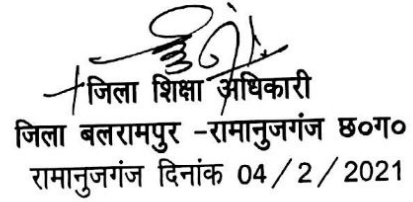 जिला शिक्षा अधिकारी
जिला बलरामपुर -रामानुजगंज छ०ग०
रामानुजगंज दिनांक 04 / 2 / 2021